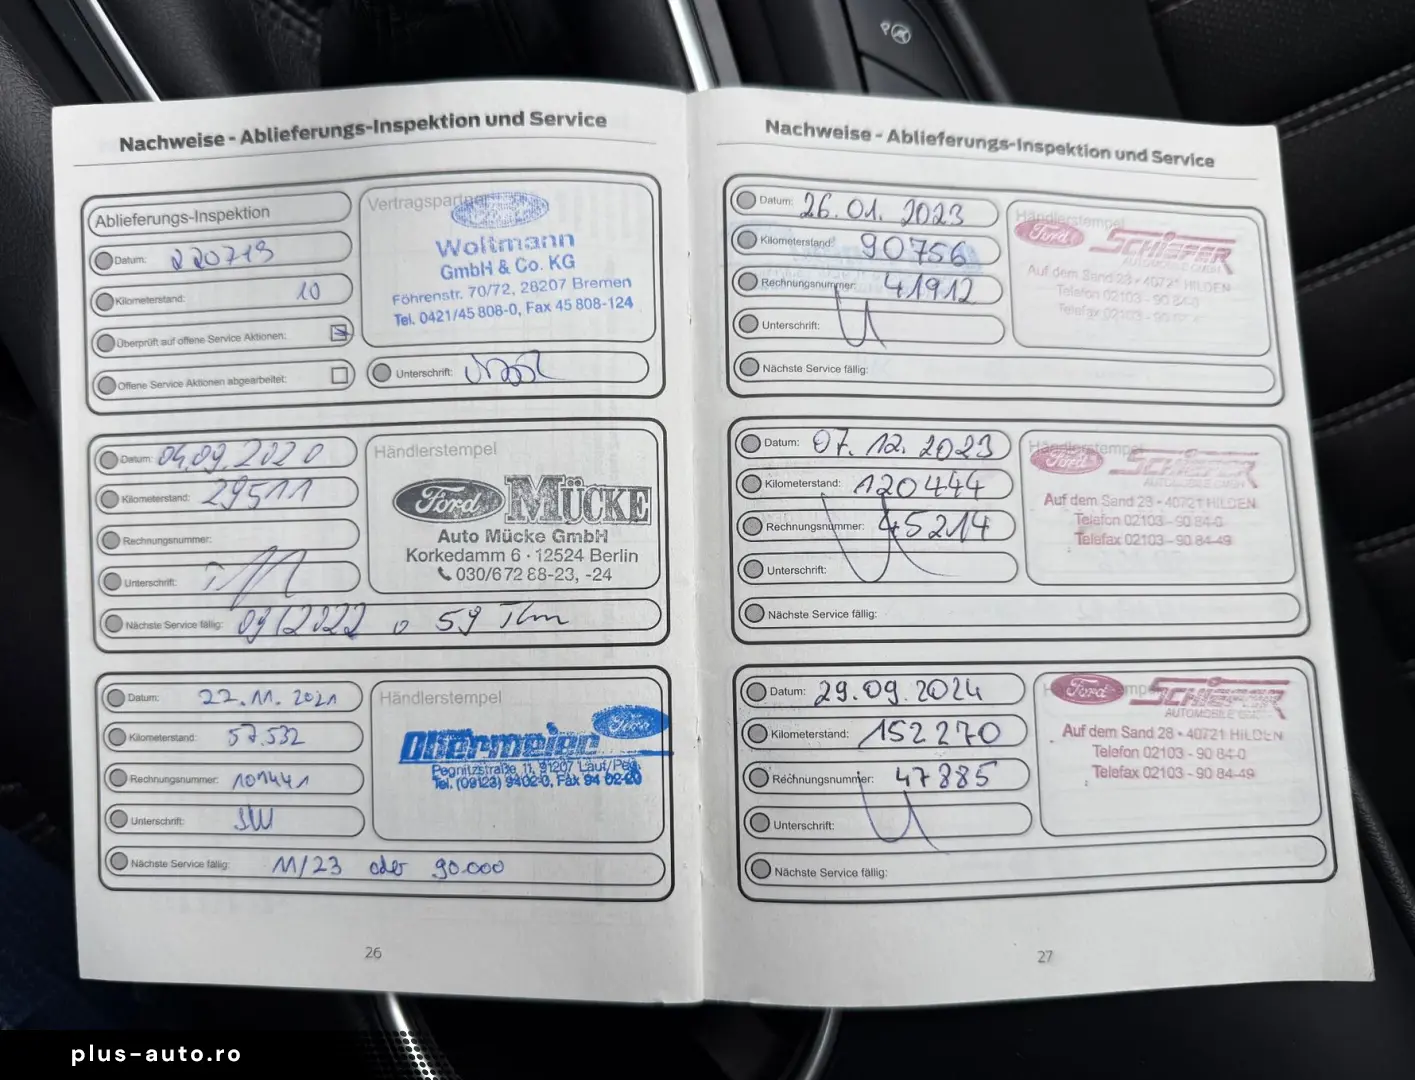 Nachweise - Ablieferungs-Inspektion und Service
Ablieferungs-Inspektion
Datum: 220719
Kilometerstand: 10
Überprüft auf offene Service Aktionen:
Offene Service Aktionen abgearbeitet:
Vertragspartner
Ford
Woltmann
GmbH & Co. KG
Föhrenstr. 70/72, 28207 Bremen
Tel. 0421/45 808-0, Fax 45 808-124
Unterschrift:
Datum: 04.09.2020
Kilometerstand: 29511
Rechnungsnummer:
Unterschrift:
Nächste Service fällig: 09/2022 o 59 Tkm
Händlerstempel
Ford MÜCKE
Auto Mücke GmbH
Korkedamm 6 · 12524 Berlin
030/6 72 88-23, -24
Datum: 22.11.2021
Kilometerstand: 57.532
Rechnungsnummer: 101441
Unterschrift:
Nächste Service fällig: 11/23 oder 90.000
Händlerstempel
Ford
Obermeier
Pegnitzstraße 11, 91207 Lauf/Peg.
Tel. (09123) 9402-0, Fax 94 02-20
26
Nachweise - Ablieferungs-Inspektion und Service
Datum: 26.01.2023
Kilometerstand: 90756
Rechnungsnummer: 41912
Unterschrift:
Nächste Service fällig:
Händlerstempel
Ford SCHIEFER
AUTOMOBILE GMBH
Auf dem Sand 28 · 40721 HILDEN
Telefon 02103 - 90 84-0
Telefax 02103 - 90
Datum: 07.12.2023
Kilometerstand: 120444
Rechnungsnummer: 45214
Unterschrift:
Nächste Service fällig:
Händlerstempel
Ford SCHIEFER
AUTOMOBILE GMBH
Auf dem Sand 28 · 40721 HILDEN
Telefon 02103 - 90 84-0
Telefax 02103 - 90 84-49
Datum: 29.09.2024
Kilometerstand: 152270
Rechnungsnummer: 47885
Unterschrift:
Nächste Service fällig:
Ford SCHIEFER
AUTOMOBILE GMBH
Auf dem Sand 28 · 40721 HILDEN
Telefon 02103 - 90 84-0
Telefax 02103 - 90 84-49
27
plus-auto.ro